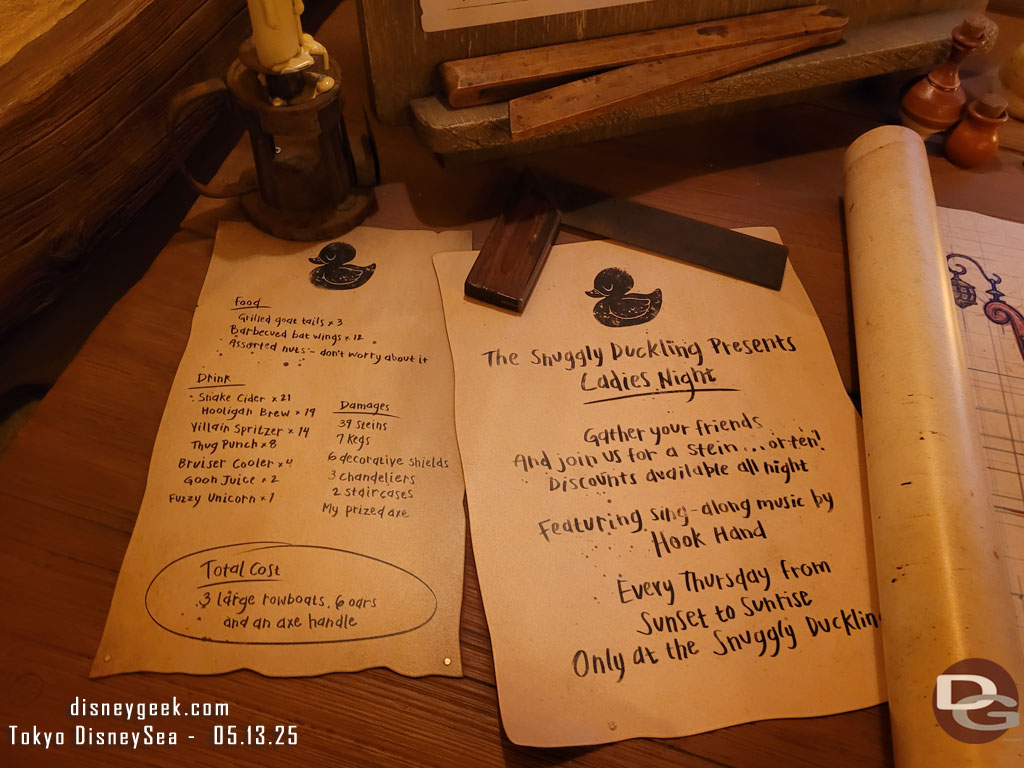 Food
Grilled goat tails x 3
Barbecued bat wings x 12
Assorted nuts - don't worry about it
Drink
Snake Cider x 21
Hooligan Brew x 19
Villain Spritzer x 14
Thug Punch x 8
Bruiser Cooler x 4
Goon Juice x 2
Fuzzy Unicorn x 1
Damages
39 steins
7 kegs
6 decorative shields
3 chandeliers
2 staircases
My prized axe
Total Cost
3 large rowboats, 6 oars
and an axe handle
The Snuggly Duckling Presents
Ladies Night
Gather your friends
And join us for a stein... or ten!
Discounts available all night
Featuring sing-along music by
Hook Hand
Every Thursday from
Sunset to Sunrise
Only at the Snuggly Duckling
disneygeek.com
Tokyo DisneySea - 05.13.25
DG